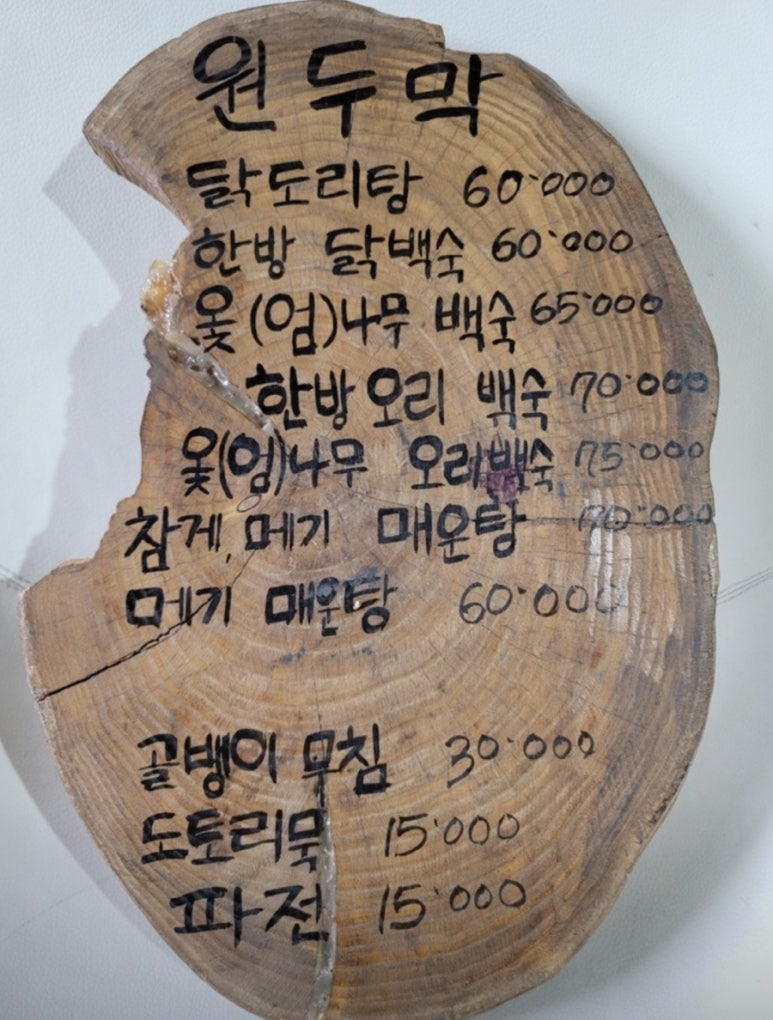 원두막
닭도리탕 60·000
한방 닭백숙 60·000
옻(엄)나무 백숙 65·000
한방오리 백숙 70·000
옻(엄)나무 오리백숙 75·000
참게,메기 매운탕 70·000
메기 매운탕 60·000
골뱅이 무침 30·000
도토리묵 15·000
파전 15·000